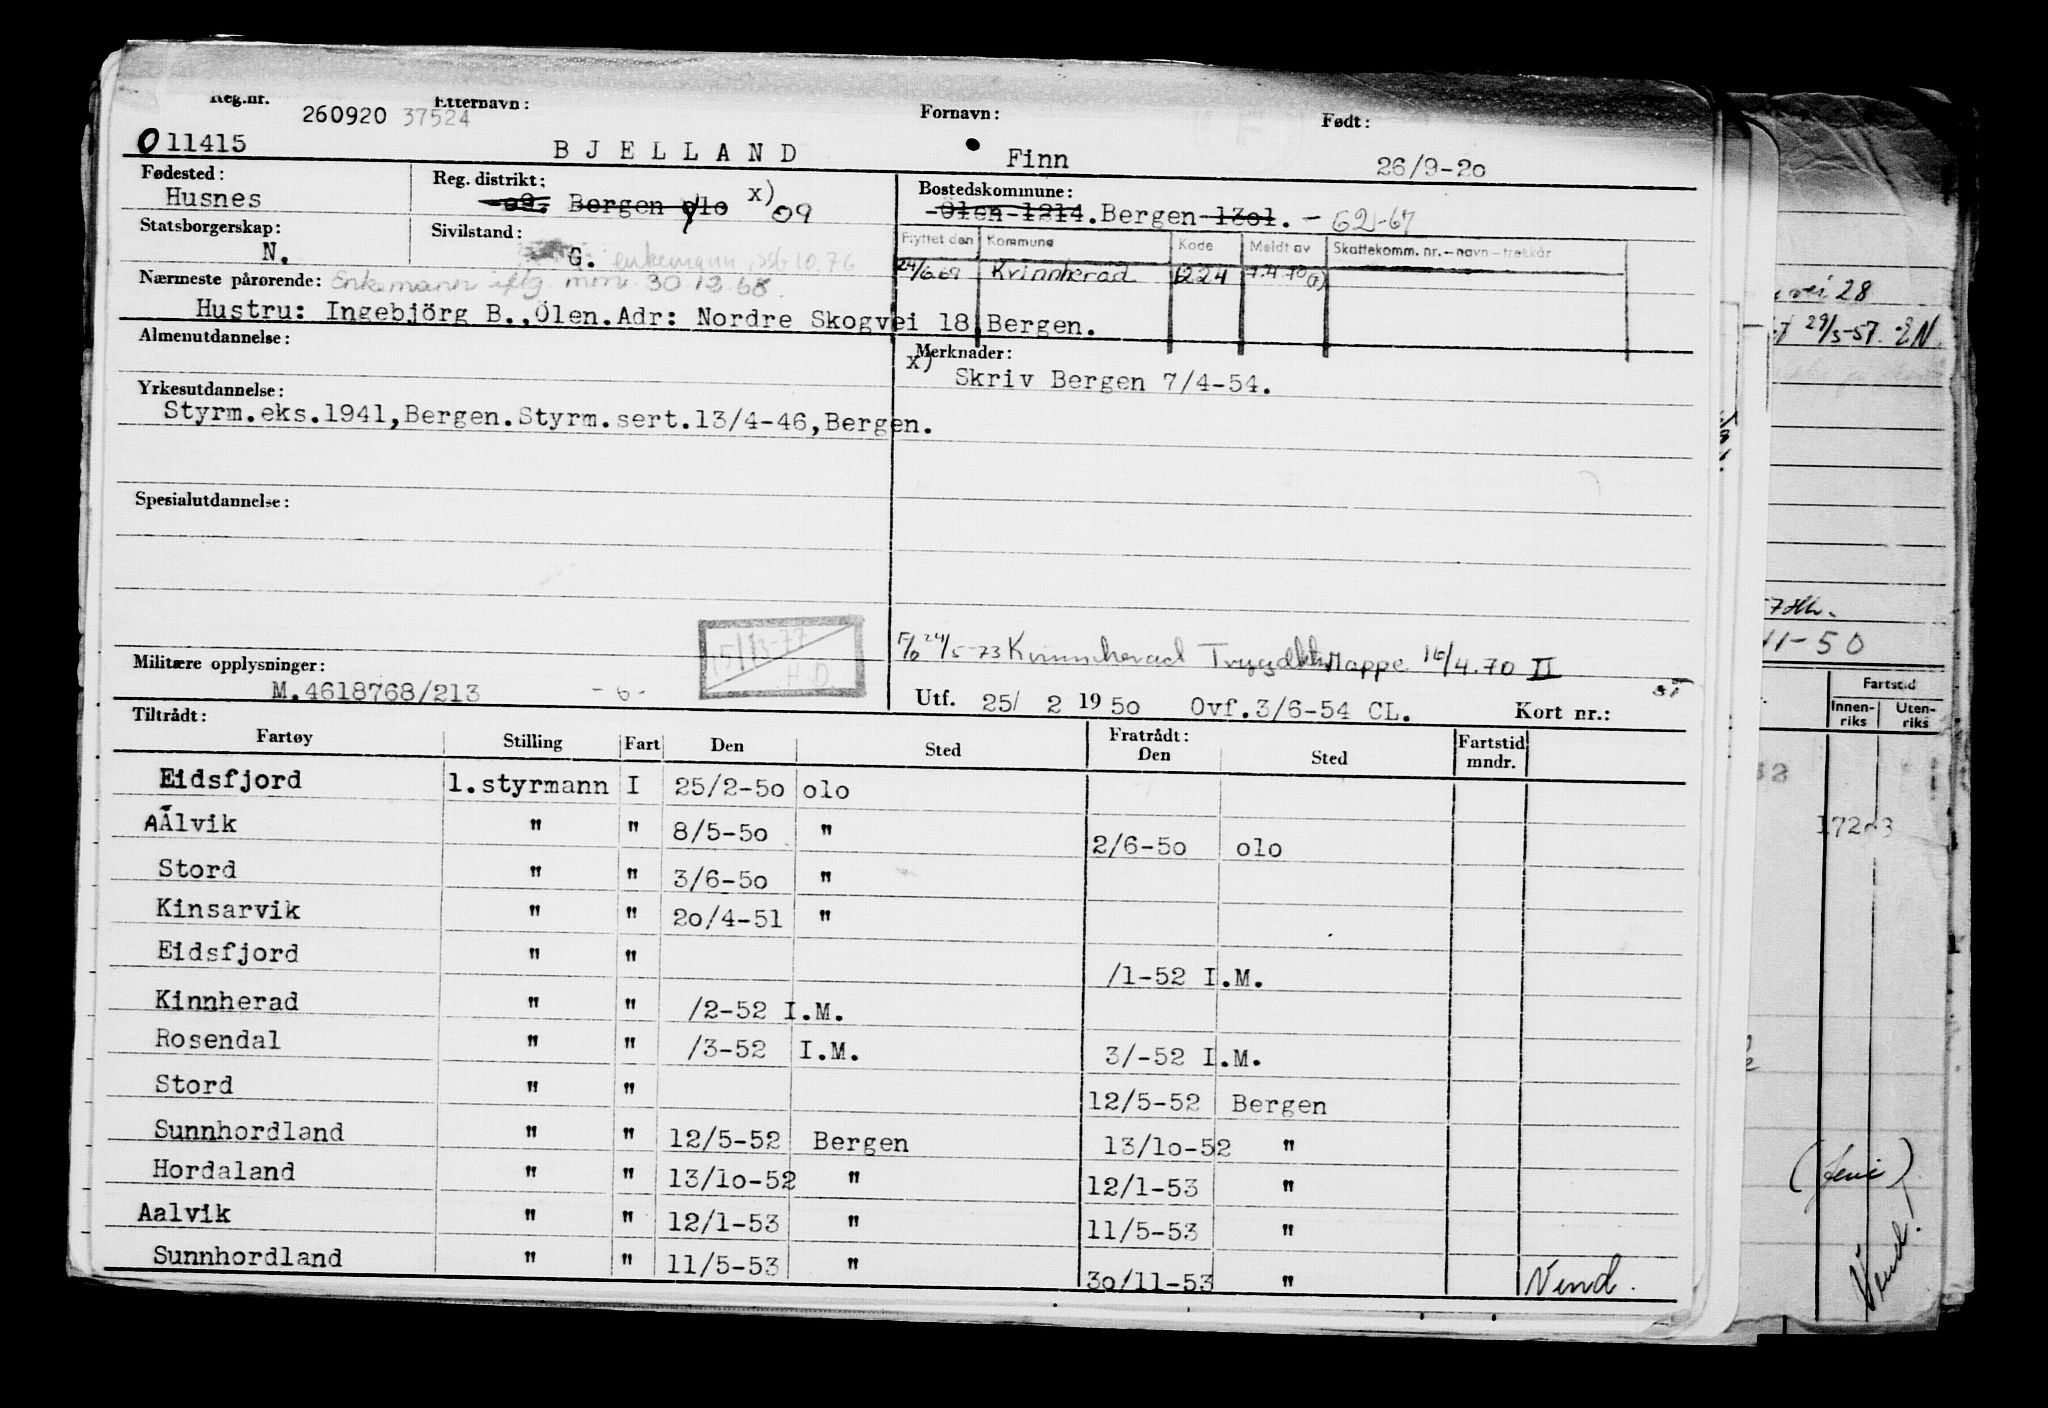 Reg.nr. 260920 37524 Etternavn: Fornavn: Født:
O 11415 BJELLAND Finn 26/9-20
Fødested: Reg. distrikt: Bostedskommune:
Husnes -o9. Bergen olo x) 09 -Ölen-1214.Bergen-13o1. -
Statsborgerskap: Sivilstand: Flyttet den Kommune Kode Meldt av Skattekomm. nr.-navn-trekkår
N. G. enkemann
24/6.69 Kvinnherad 1224 7.4.70
Nærmeste pårørende: Enkemann iflg. 30.12.68.
Hustru: Ingebjörg B.,Ölen.Adr: Nordre Skogvei 18 Bergen.
Almenutdannelse: Merknader:
x) Skriv Bergen 7/4-54.
Yrkesutdannelse:
Styrm.eks.1941,Bergen.Styrm.sert.13/4-46,Bergen.
Spesialutdannelse:
24/5-73 Kvinnherad Mappe 16/4.70 II
15/13-77
H.D.
Militære opplysninger:
M.4618768/213 -6-
Utf. 25/ 2 1950 Ovf.3/6-54 CL. Kort nr.:
Tiltrådt: Fratrådt:
Fartøy Stilling Fart Den Sted Den Sted Fartstid mndr.
Eidsfjord 1.styrmann I 25/2-5o olo
AÅlvik " " 8/5-5o " 2/6-5o olo
Stord " " 3/6-5o "
Kinsarvik " " 2o/4-51 "
Eidsfjord " " /1-52 I.M.
Kinnherad " " /2-52 I.M.
Rosendal " " /3-52 I.M. 3/-52 I.M.
Stord " " 12/5-52 Bergen
Sunnhordland " " 12/5-52 Bergen 13/1o-52 "
Hordaland " " 13/1o-52 " 12/1-53 "
Aalvik " " 12/1-53 " 11/5-53 "
Sunnhordland " " 11/5-53 " 3o/11-53 " Vend.
28
29/3-57.
11-50
Fartstid
Innen-riks Uten-riks
Vend!